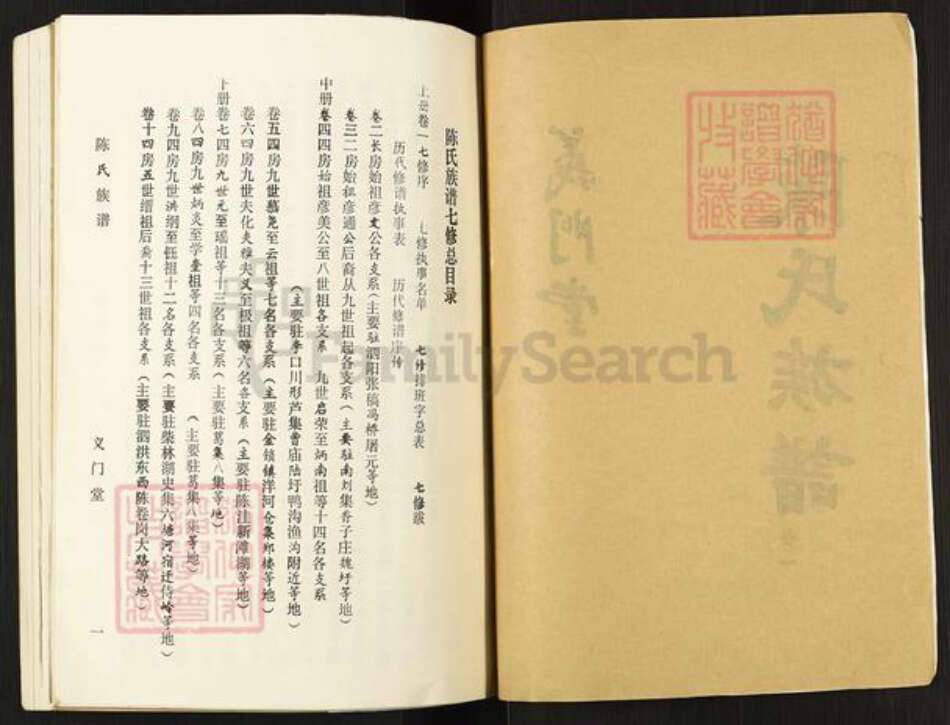 陈氏族谱七修总目录
上册卷一七修序 七修执事名单 七修排班字总表 七修跋
历代修谱执事表 历代修谱序传
卷二长房始祖彦文公各支系(主要驻泗阳张稿冯桥屠元等地)
卷三二房始祖彦通公后裔从九世祖起各支系(主要驻南刘集香子庄姚圩等地)
中册卷四四房始祖彦美公至八世祖各支系 九世启荣至炳南祖等十四名各支系
(主要驻李口川形芦集曹庙陆圩鸭沟渔沟附近等地)
卷五四房九世慕尧至云祖等七名各支系(主要驻金锁镇洋河仓集郑楼等地)
卷六四房九世夫化夫雅夫又至极祖等六名各支系(主要驻陈洼新滩湖等地)
下册卷七四房九世元至瑶祖等十三名各支系(主要驻葛集八集等地)
卷八四房九世炳炎至学奎祖等四名各支系 (主要驻葛集八集等地)
卷九四房九世洪纲至 祖十二名各支系(主要驻柴林湖史集六塘河宿迁侍岭等地)
卷十四房五世缙祖后裔十三世祖各支系(主要驻泗洪东西陈卷岗大路等地)
陈氏族谱 义门堂 一
陈氏族谱
義門堂
FamilySearch